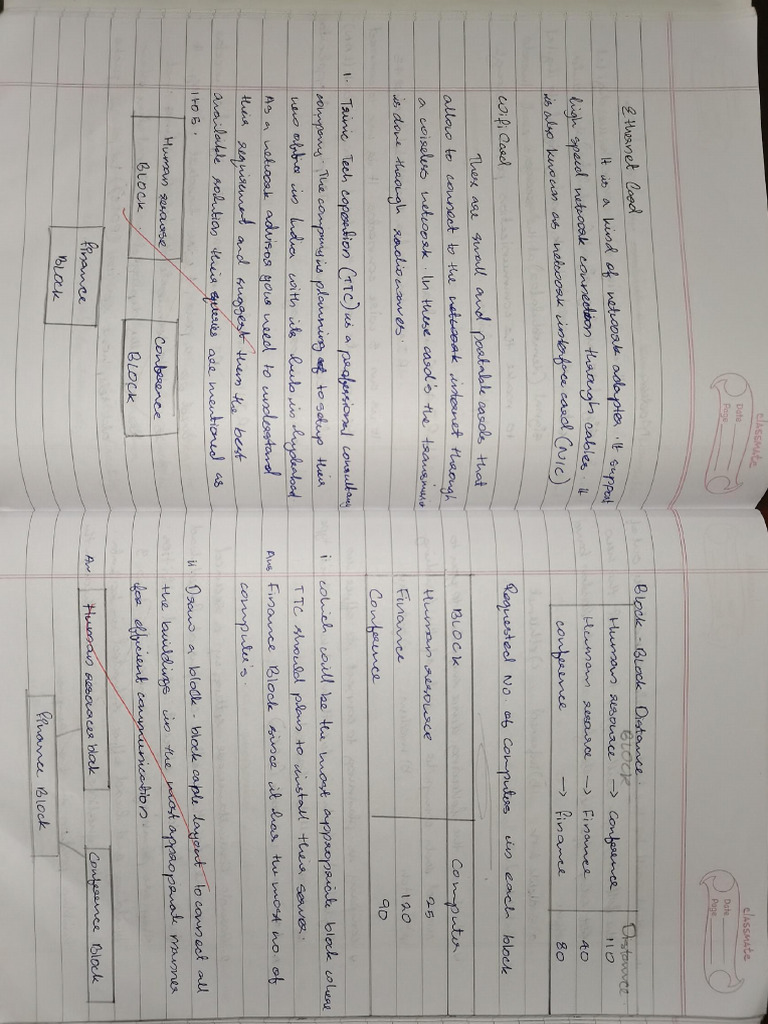 classmate
Date
Page
Ethernet Card
It is a kind of network adapter. It support
high speed network connection through cables. It
is also known as network interface card (NIC)
Wifi Card
These are small and portable cards that
allow to connect to the network internet through
a wireless network. In these card's the
is done through radiowaves.
1. Tech (TTC) is a professional consultancy
company. The company is planning to setup their
new office in India with its hub in hyderabad
As a network advisor you need to understand
their requirement and suggest them the best
available solution their queries are mentioned as
Human resource
BLOCK
Conference
BLOCK
finance
Block
classmate
Date
Page
Block - Block Distance.
BLOCK Distance
Human resource → Conference 110
Human resource → Finance 40
conference → Finance 80
Requested No. of Computers in each block
BLOCK Computer
Human resource 25
Finance 120
Conference 90
i which will be the most appropriate block where
TTC should plan to install their server.
Ans Finance Block since it has the most no. of
computer's.
ii Draw a block - block cable layout to connect all
the buildings in the most appropriate manner
for efficient communication.
Ans Human resources block
Conference Block
finance Block